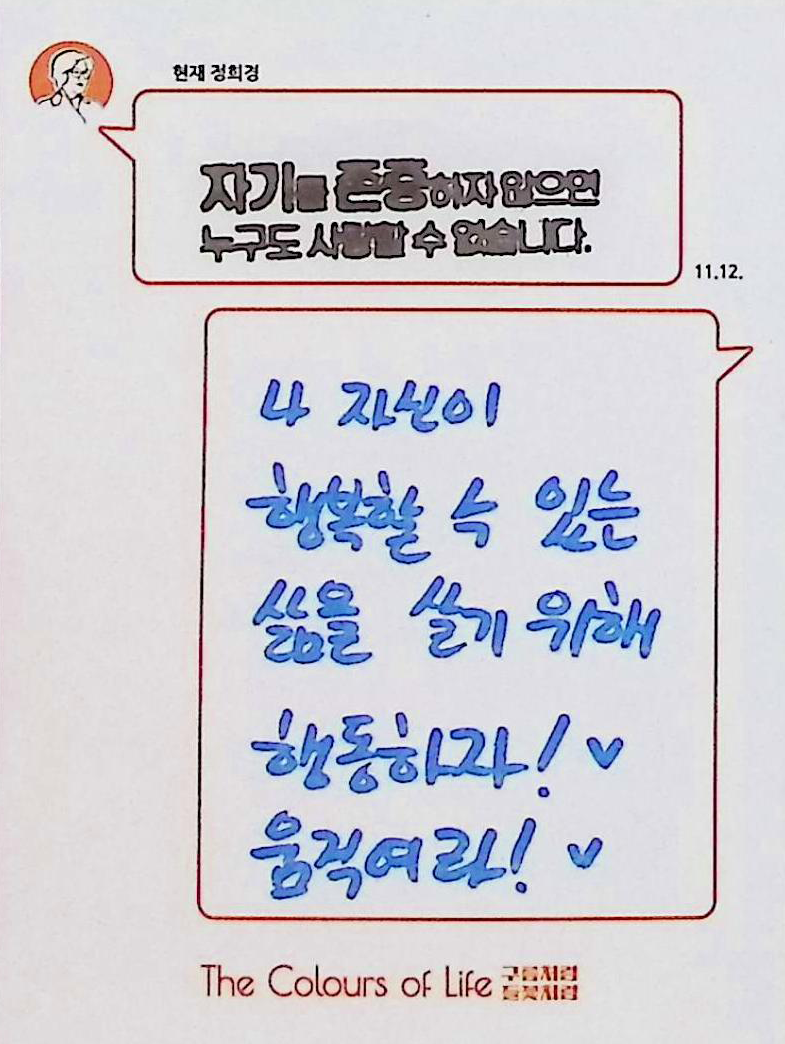 현재 정희경
자기를 존중하지 않으면
누구도 사랑할 수 없습니다.
11.12.
나 자신이
행복할 수 있는
삶을 살기 위해
행동하자! ♥
움직여라! ♥
The Colours of Life 구름처럼
들꽃처럼